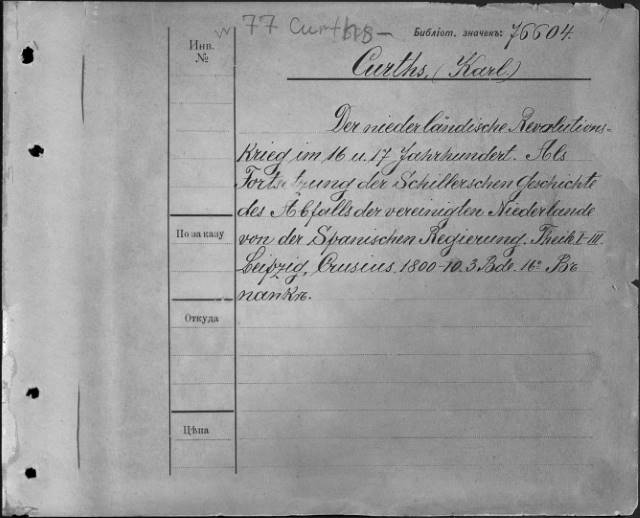 77 Curths—
Библіот. значекъ: 76604.
Инв. №
Curths, (Karl)
Der niederländische Revolutions-
Krieg im 16 u. 17 Jahrhundert. Als
Fortsetzung der Schillerschen Geschichte
des Abfalls der vereinigten Niederlande
von der Spanischen Regierung. Theile I-III.
Leipzig, Crusius. 1800-10. 3 Bde. 16º Въ
папкѣ.
По заказу
Откуда
Цѣна